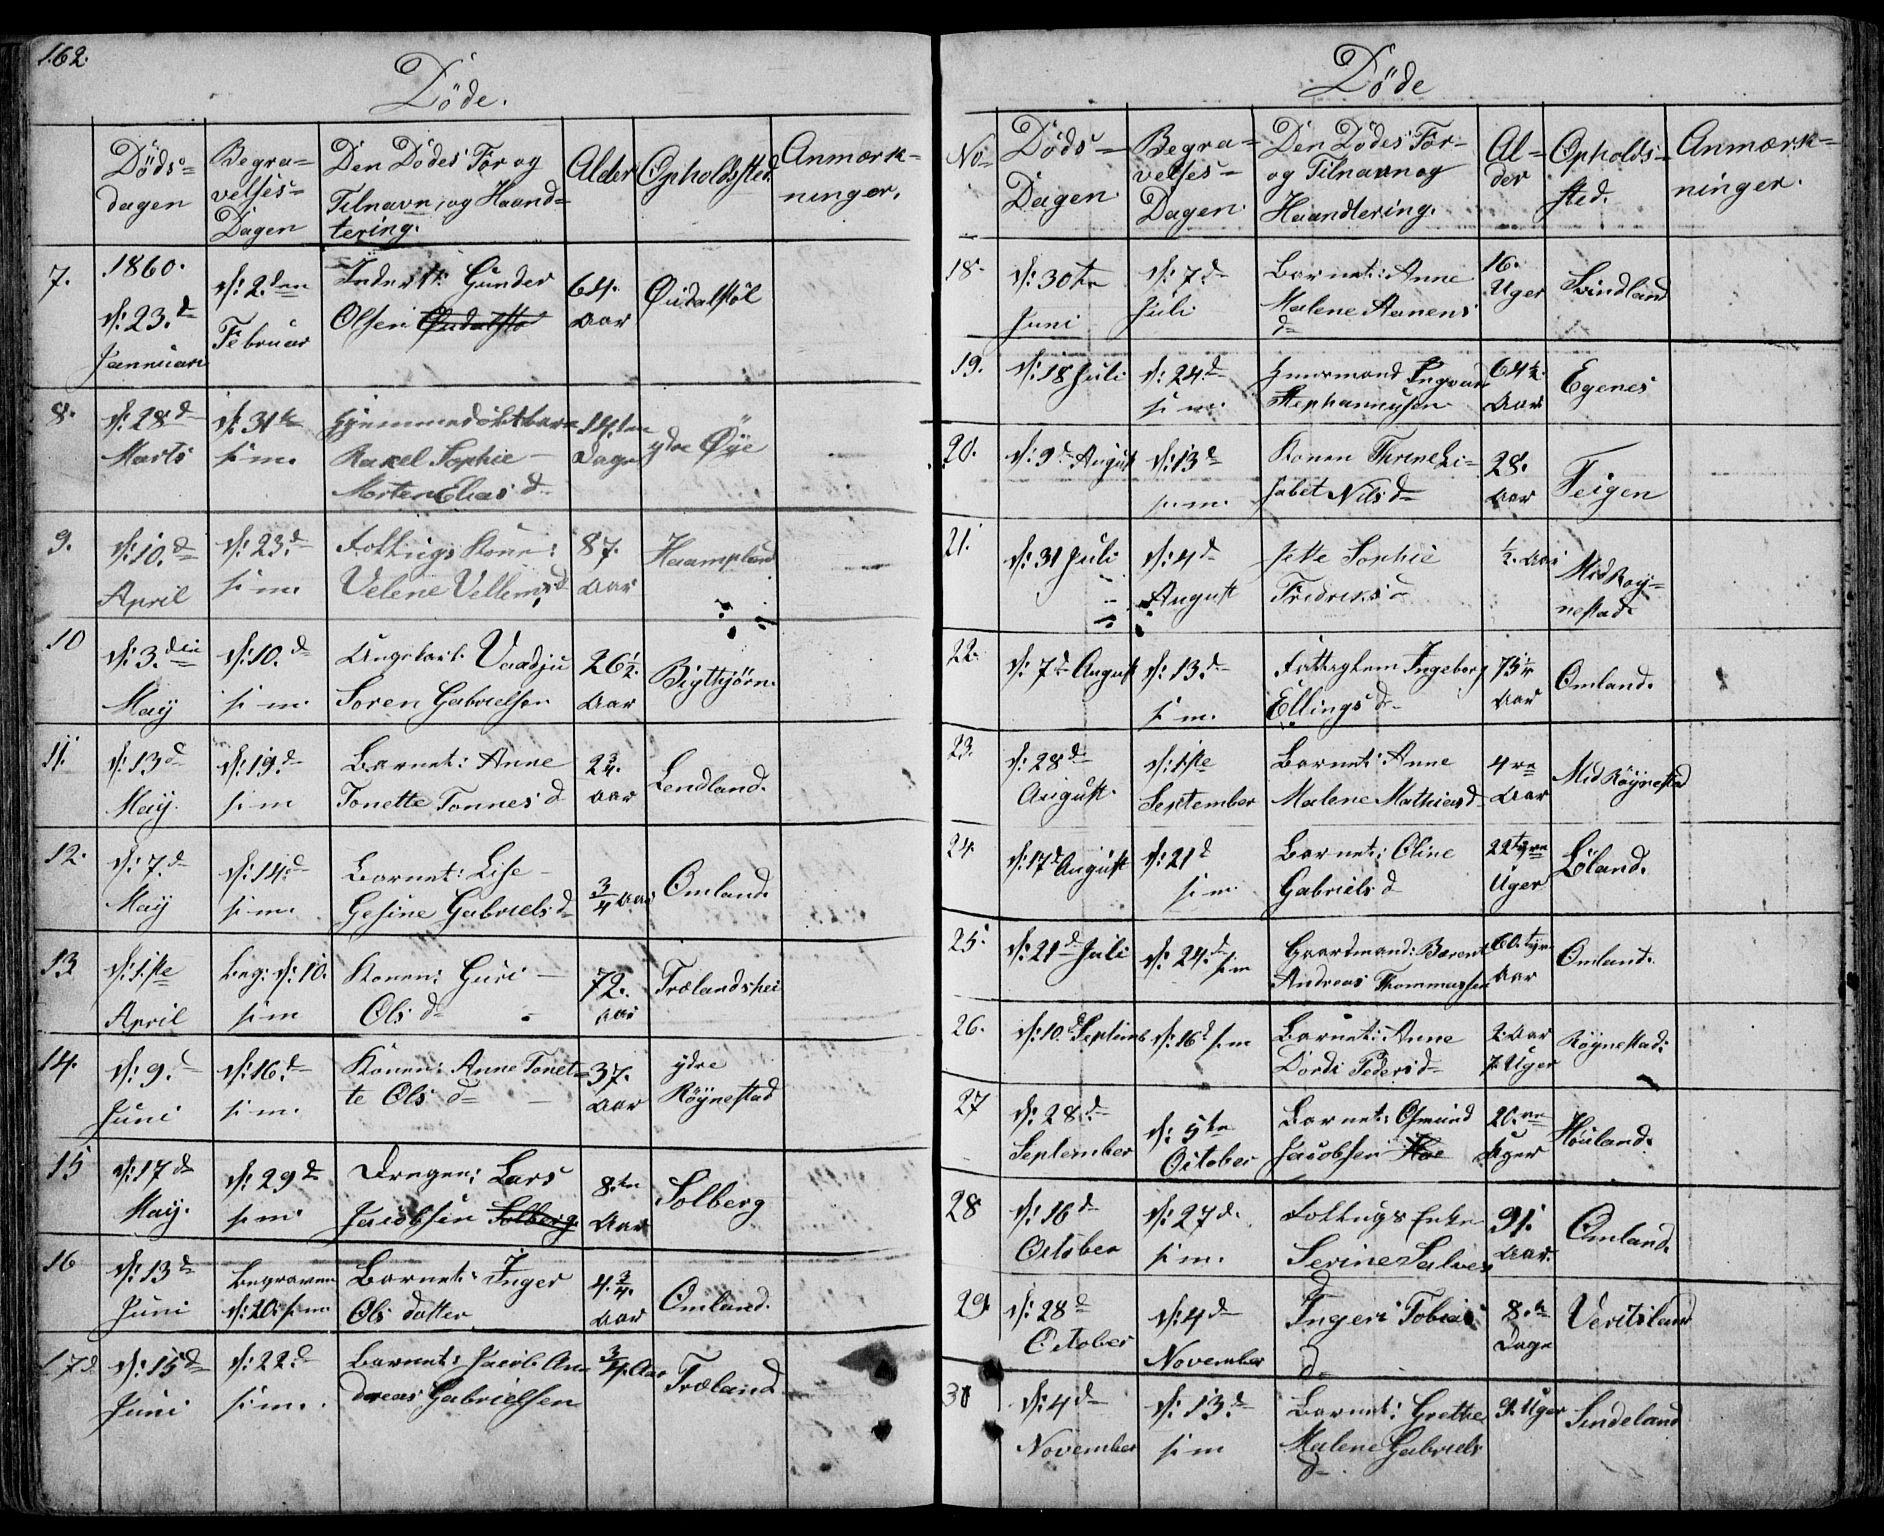 162.
Döde.
Döds-
dagen
Begra-
velses-
Dagen
Den Dödes For og
Tilnavn, og Haand-
tering.
Alder
Opholdssted.
Anmærk-
ninger.
7.
1860.
d: 23.d
Januari
d: 2.den
Februar
Inderst: Gunder
Olsen
64.
Aar
Øidalstöl
8.
d: 28d
Marts
d: 31te
s: m.
Hjemmedöbt barn
Rakel Sophie
Morten Elias d.
14.ten
Dage
ydre Øye
9.
d: 10.d
April
d: 23.d
s: m.
Fattigs Kone:
Velene Vellems d
87.
Aar
Haampland
10
d: 3.die
May
d: 10.d
s: m.
Ungkarl:
Soren Gabrielsen
26 1/2.
Aar
Bigtjørn.
11.
d: 13d
May.
d: 19.d
s: m
Barnet: Anne
Tonette Tonnes d
2 3/4.
Aar
Lendland.
12.
d: 7.d
May
d: 14.d
s: m.
Barnet: Lise
Gesine Gabriels d
3/4 Aar
Omland.
13
d: 1ste
April
beg: d: 10.
s: m
Konen: Guri
Ols d
72.
Aar
Trælandshei
14.
d: 9.d
Juni
d: 16.d
s: m.
Konen: Anne Tonet-
te Ols d
37.
Aar
ydre
Röynestad
15
d: 17d
May.
d: 29d
s: m.
Drengen: Lars
Jacobsen Solberg
8.te
Aar
Solberg
16
d: 13d
Juni
begraven
d: 20. s: m
Barnet: Inger
Ols datter
4. 3/4.
Aar
Omland.
17d
d: 15d
Juni
d: 22.d
s: m.
Barnet: Jacob An
dreas Gabrielsen
3/4 Aar
Træland
Döde
No
Döds-
Dagen
Begra-
velses-
Dagen
Den Dödes For-
og Tilnavn og
Haandtering.
Al-
der
Opholds-
sted.
Anmærk-
ninger.
18.
d: 30te
Juni
d: 7d
Juli
Barnet: Anne
Malene Aanens
d
16.
Uger
Svindland
19.
d: 18 Juli
d: 24.d
s: m.
Ingvar
Stephannusen
64 1/2.
Aar
Egenes
20.
d: 9d August
d: 13d
s: m.
Konen Thrine Li-
sabet Nils d
28.
Aar
Feigen
21.
d: 31 Juli
d: 4d
August
Sophie
Fredriks d
1/2. Aar
Mid Röy-
nestad.
22.
d: 7d August
d: 13.d
s: m.
Fattiglem Ingeborg
Ellings d
75 1/4
Aar
Omland.
23.
d: 28d
August.
d: 1ste
September
Barnet: Anne
Malene Mathias d
4re
Aar
Mid Röynestad
24
d: 17d August
d: 21d
s: m.
Barnet: Oline
Gabriels d
22tyve
Uger
Löland.
25.
d: 21d Juli
d: 24.d s: m
Gaardmand: Barent
Andreas Thommassen
60.tyve
Aar
Omland.
26.
d: 10.d Septemb
d: 16d s: m
Barnet: Anne
Dordi Peders d
2 Aar
7 Uger
Röynestad.
27
d: 28.d
September
d: 5te
October
Barnet: Osmund
Jacobsen
20.ve
Uger
Höuland.
28
d: 16d
October
d: 27d.
s: m.
Fattigs Enke
Serine Salves
d
91.
Aar.
Omland.
29.
d: 28d
October
d: 4d
November
Ingeri Tobias
d
8.te
Dage
Veritsland
30
d: 4d
November
d: 13.d
s: m
Barnet: Grethe
Malene Gabriels
d
9. Uger
Sindeland